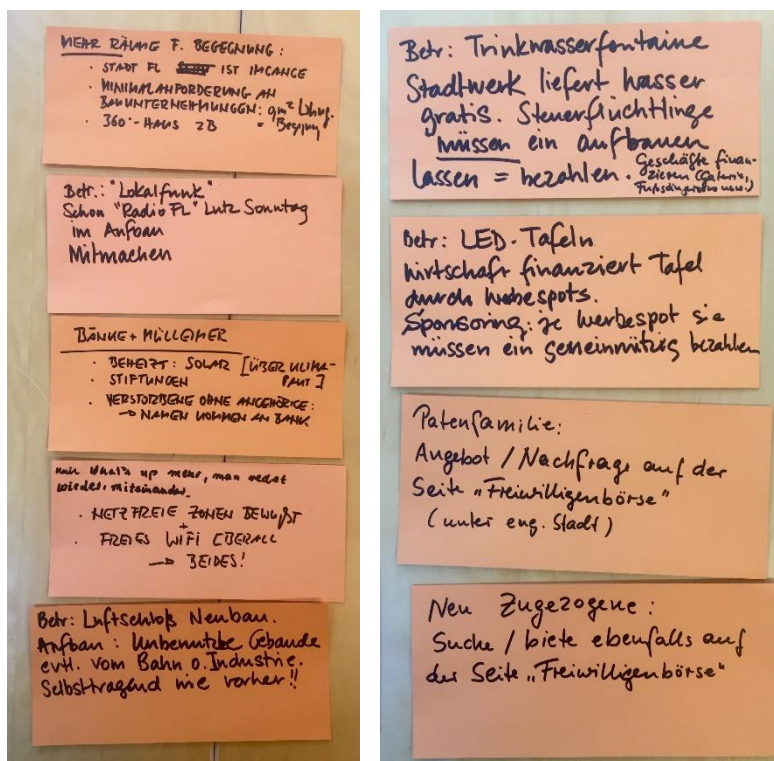 MEHR RÄUME F. BEGEGNUNG:
· STADT FL IST IMCANCE
· MINIMALANFORDERUNG AN
BAUUNTERNEHMUNGEN: qm² Wohng.
· 360°-HAUS ZB = Begegng
Betr.: "Lokalfunk"
Schon "Radio FL" Lutz Sonntag
im Aufbau
Mitmachen
BÄNKE + MÜLLEIMER
· BEHEIZT: SOLAR [ÜBER KLIMA-
PAKT]
· STIFTUNGEN
· VERSTORBENE OHNE ANGEHÖRIGE:
→ NAMEN KOMMEN AN BANK
What's up mehr, man redet
wieder miteinander.
· NETZFREIE ZONEN BEWUßT
+
· FREIES WIFI ÜBERALL
→ BEIDES!
Betr: Luftschloß Neubau.
Aufbau: Unbenutzbe Gebäude
evtl. vom Bahn o. Industrie.
Selbsttragend wie vorher!!
Betr: Trinkwasserfontaine
Stadtwerk liefert Wasser
gratis. Steuerflüchtlinge
müssen ein aufbauen
lassen = bezahlen. Geschäfte finan-
zieren (Galerie,
usw.)
Betr: LED-Tafeln
Wirtschaft finanziert Tafel
durch Webespots.
Sponsoring: je Werbespot sie
müssen ein gemeinnützig bezahlen
Patenfamilie:
Angebot / Nachfrage auf der
Seite „Freiwilligenbörse"
(unter eng. Stadt)
Neu Zugezogene:
Suche / biete ebenfalls auf
der Seite „Freiwilligenbörse"